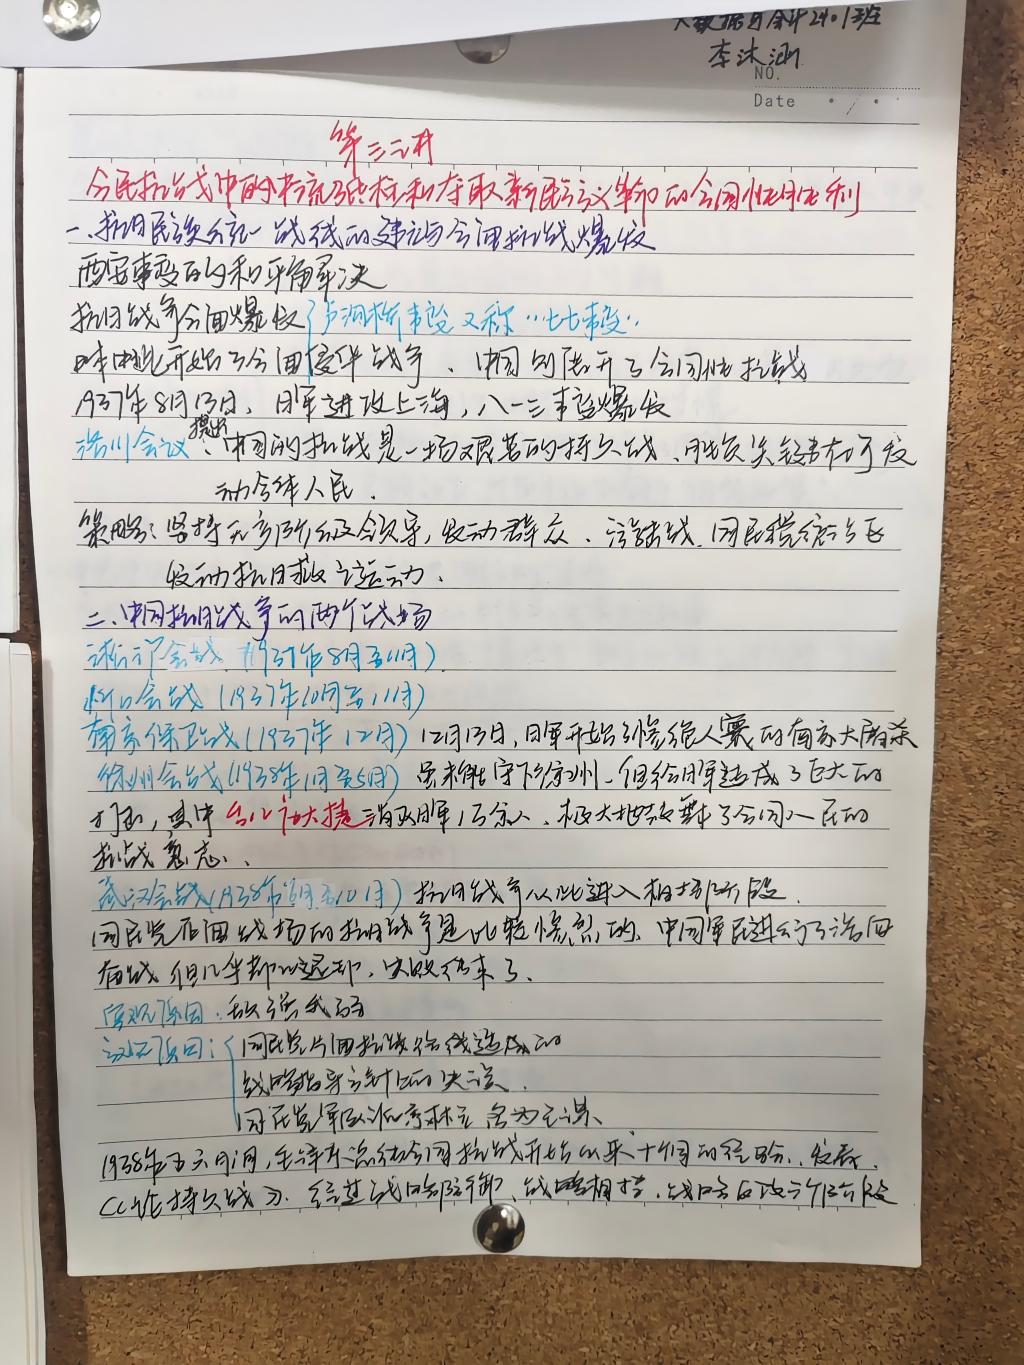 大数据与会计2401班
李沐涵
NO.
Date
第三讲
全民抗战中的中流砥柱和夺取新民主主义革命的全国性胜利
一、抗日民族统一战线的建立与全面抗战爆发
西安事变的和平解决
抗日战争全面爆发 卢沟桥事变又称"七七事变"
日本由此开始了全面侵华战争、中国则展开了全国性抗战
1937年8月13日，日军进攻上海，八一三事变爆发
洛川会议 提出、中国的抗战是一场艰苦的持久战、胜负关键在于发
动全体人民．
策略：坚持无产阶级领导，发动群众、游击战、国民党统治区
发动抗日救亡运动．
二、中国抗日战争的两个战场
会战（1937年8月至11月）
忻口会战（1937年10月至11月）
南京保卫战（1937年12月）12月13日，日军开始了惨绝人寰的南京大屠杀
徐州会战（1938年1月至5月）虽未能守下徐州、但给日军造成了巨大的
打击，其中台儿庄大捷消灭日军1万余人、极大地鼓舞了全国人民的
抗战意志．
武汉会战（1938年6月至10月）抗日战争从此进入相持阶段．
国民党正面战场的抗日战争是比较惨烈的、中国军民进行了浴血
奋战 但几乎都以退却、失败结束了．
客观原因．敌强我弱
原因：国民党片面抗战路线造成的
战略指导方针上的失误．
国民党军队派系林立 各为主谋．
1938年五六月间，毛泽东总结全国抗战开始以来十个月的经验．发表．
《论持久战》．经过战略防御、战略相持、战略反攻三个阶段